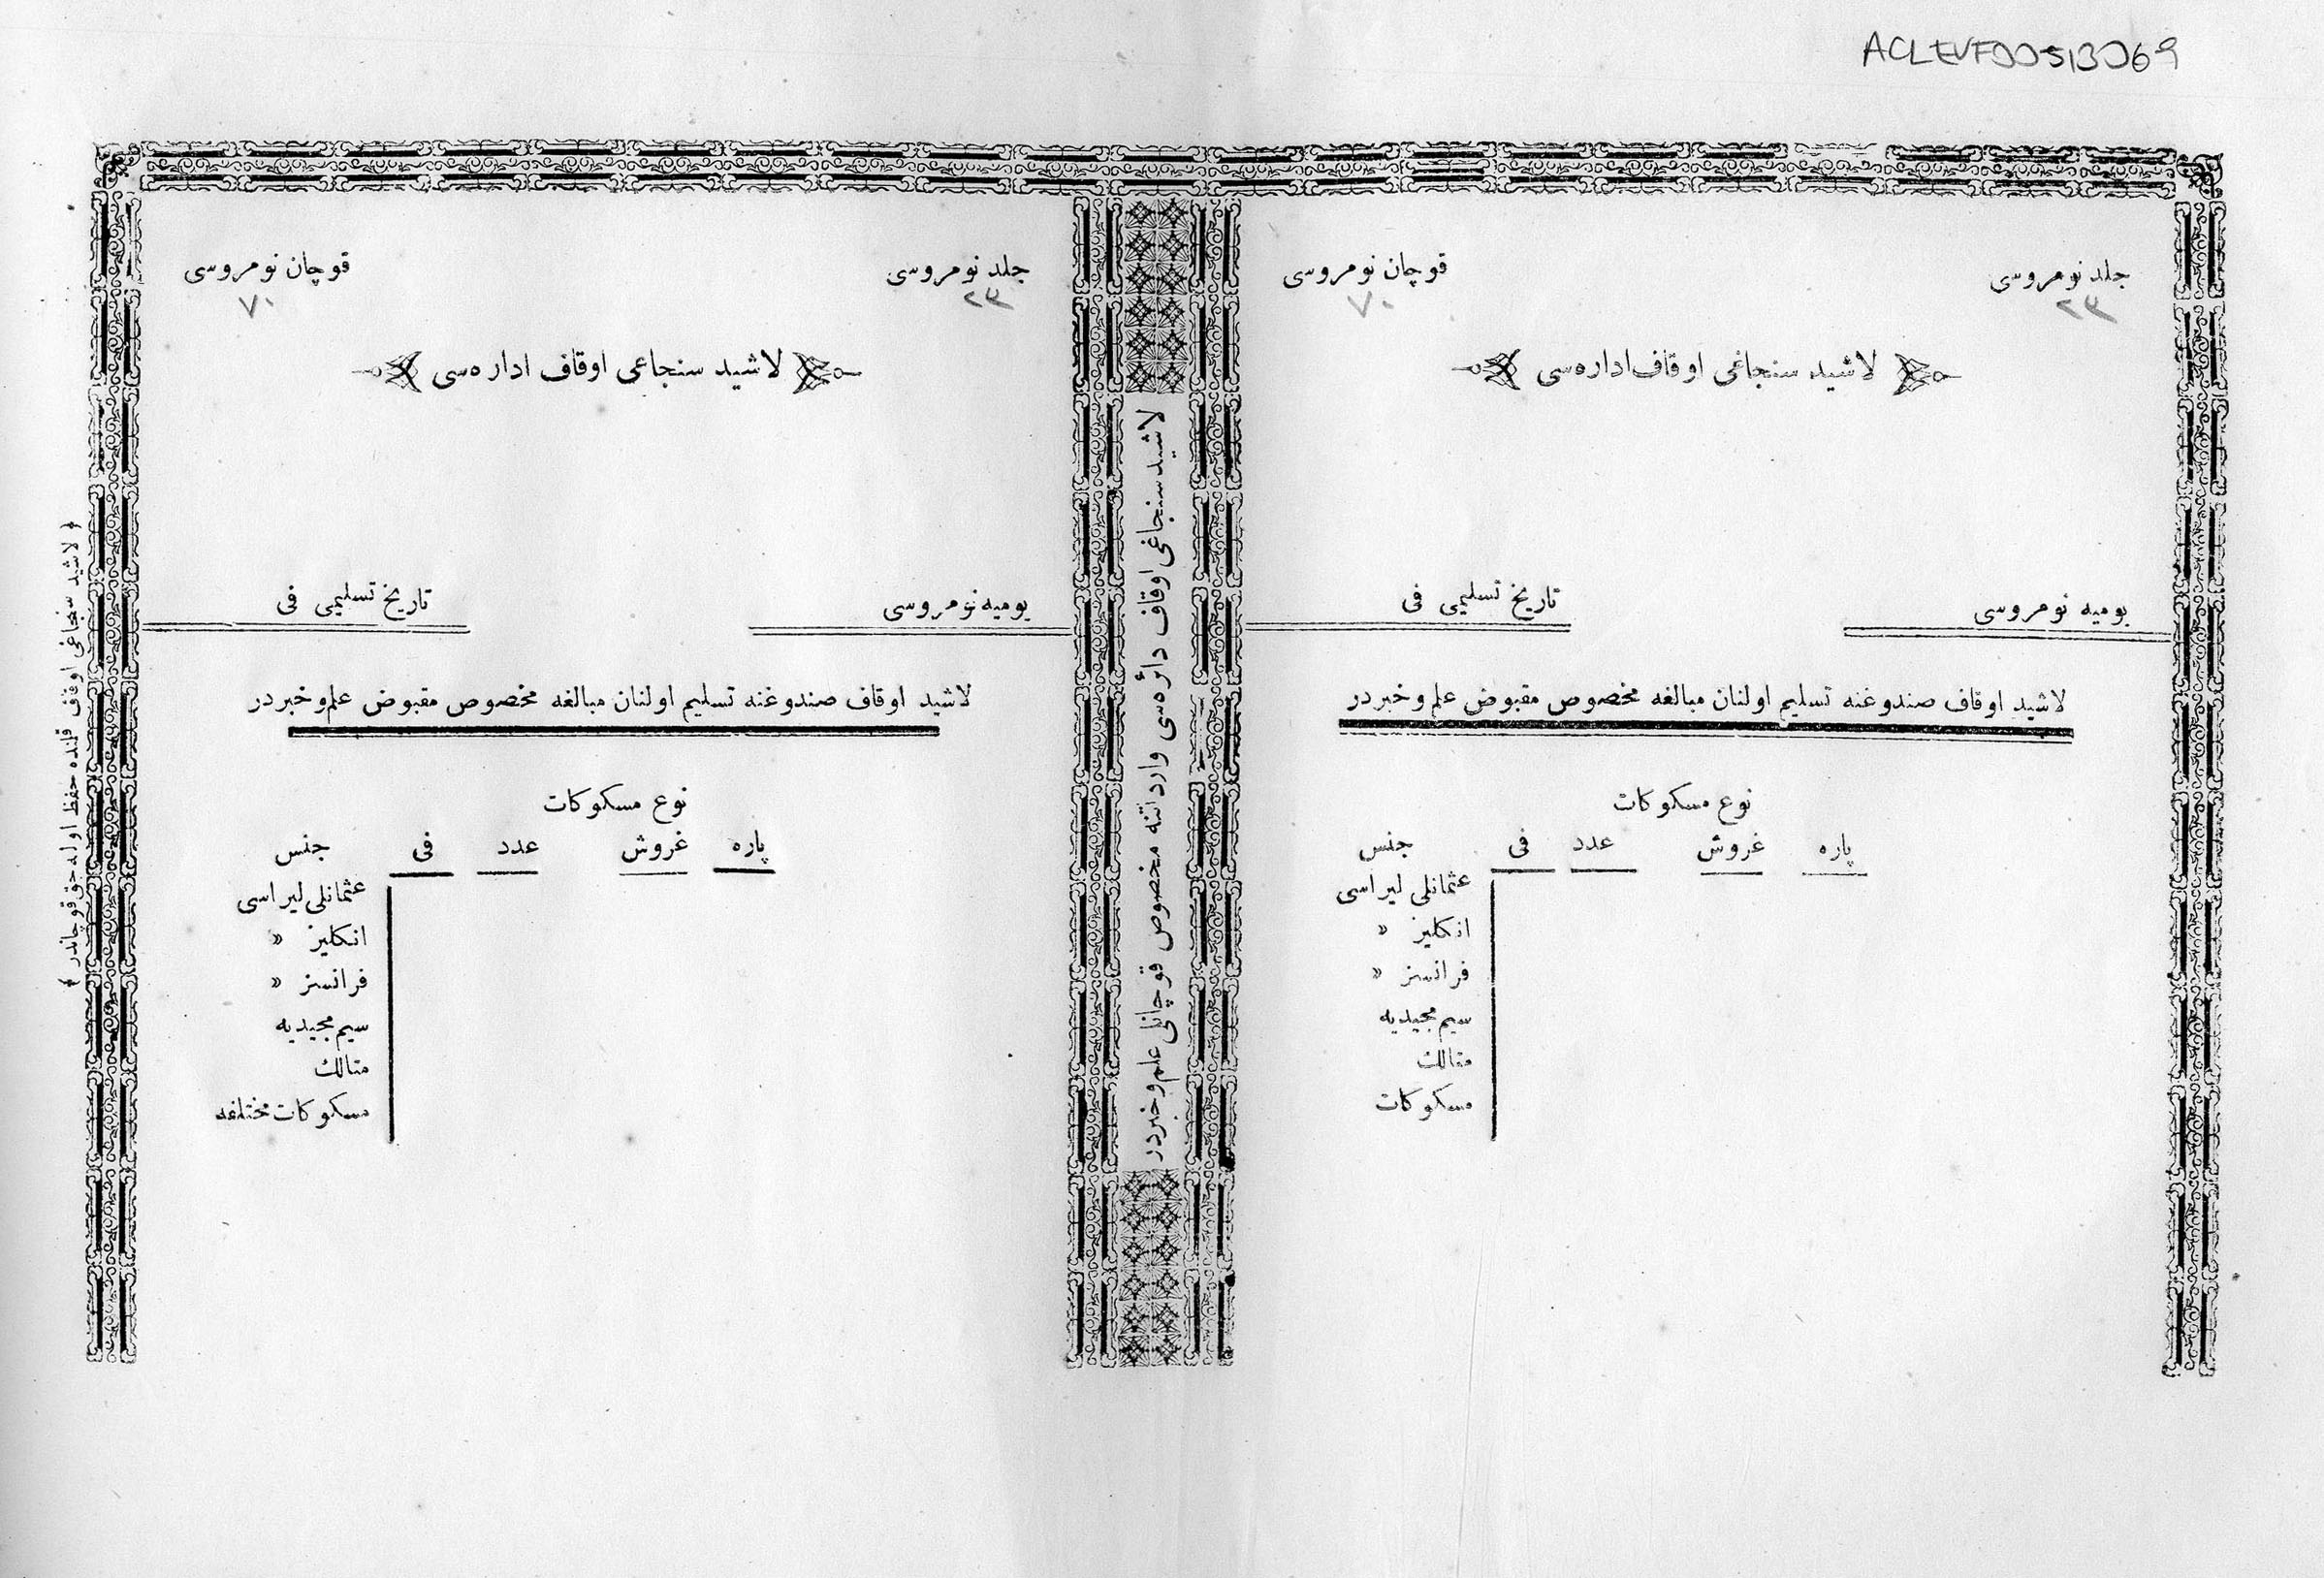 ACLEVF00513069
جلد نومروسی
٢٣
قوچان نومروسی
٧٠
لاشید سنجاغی اوقاف اداره‌سی
یومیه نومروسی
تاریخ تسلیمی فی
لاشید اوقاف صندوغنه تسلیم اولنان مبالغه مخصوص مقبوض علم و خبردر
نوع مسکوکات
پاره غروش عدد فی جنس
عثمانلی لیراسی
انکلیز »
فرانسز »
سیم مجیدیه
متالك
مسکوکات
لاشید سنجاغی اوقاف دائره‌سی وارداتنه مخصوص قوچانلی علم و خبردر
جلد نومروسی
٢٣
قوچان نومروسی
٧٠
لاشید سنجاغی اوقاف اداره‌سی
یومیه نومروسی
تاریخ تسلیمی فی
لاشید اوقاف صندوغنه تسلیم اولنان مبالغه مخصوص مقبوض علم و خبردر
نوع مسکوکات
پاره غروش عدد فی جنس
عثمانلی لیراسی
انکلیز »
فرانسز »
سیم مجیدیه
متالك
مسکوکات مختلفه
﴿ لاشید سنجاغی اوقاف قلنده حفظ اوله‌جق قوچاندر ﴾